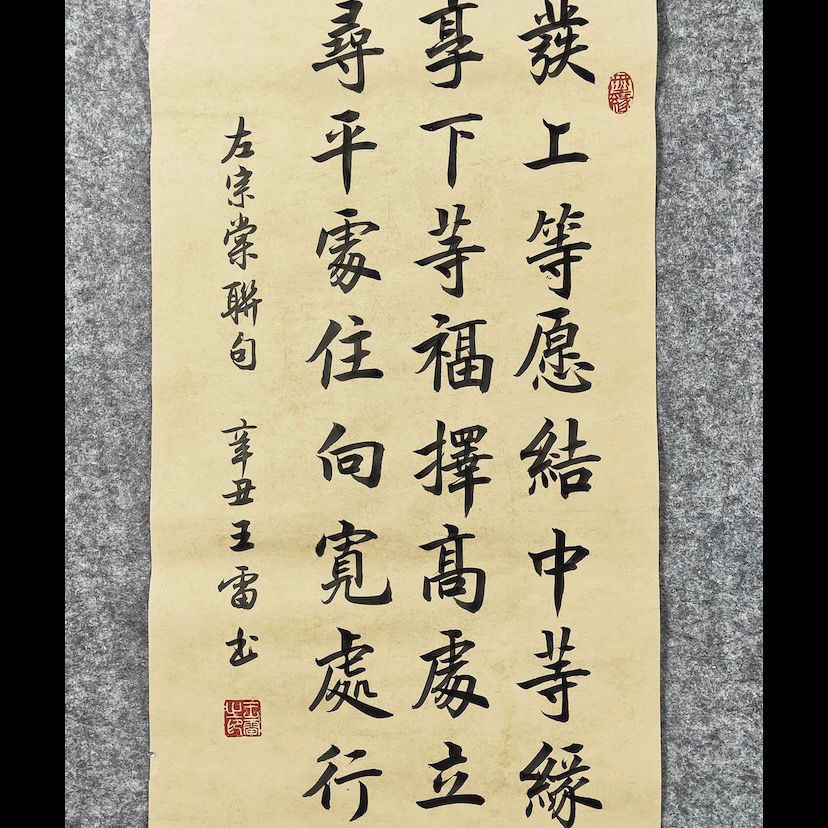 發上等愿結中等緣
享下等福擇高處立
尋平處住向寬處行
左宗棠聯句 辛丑王雷书
王雷之印